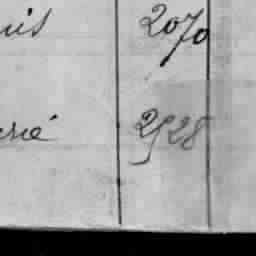 uis 2070
rié 2528